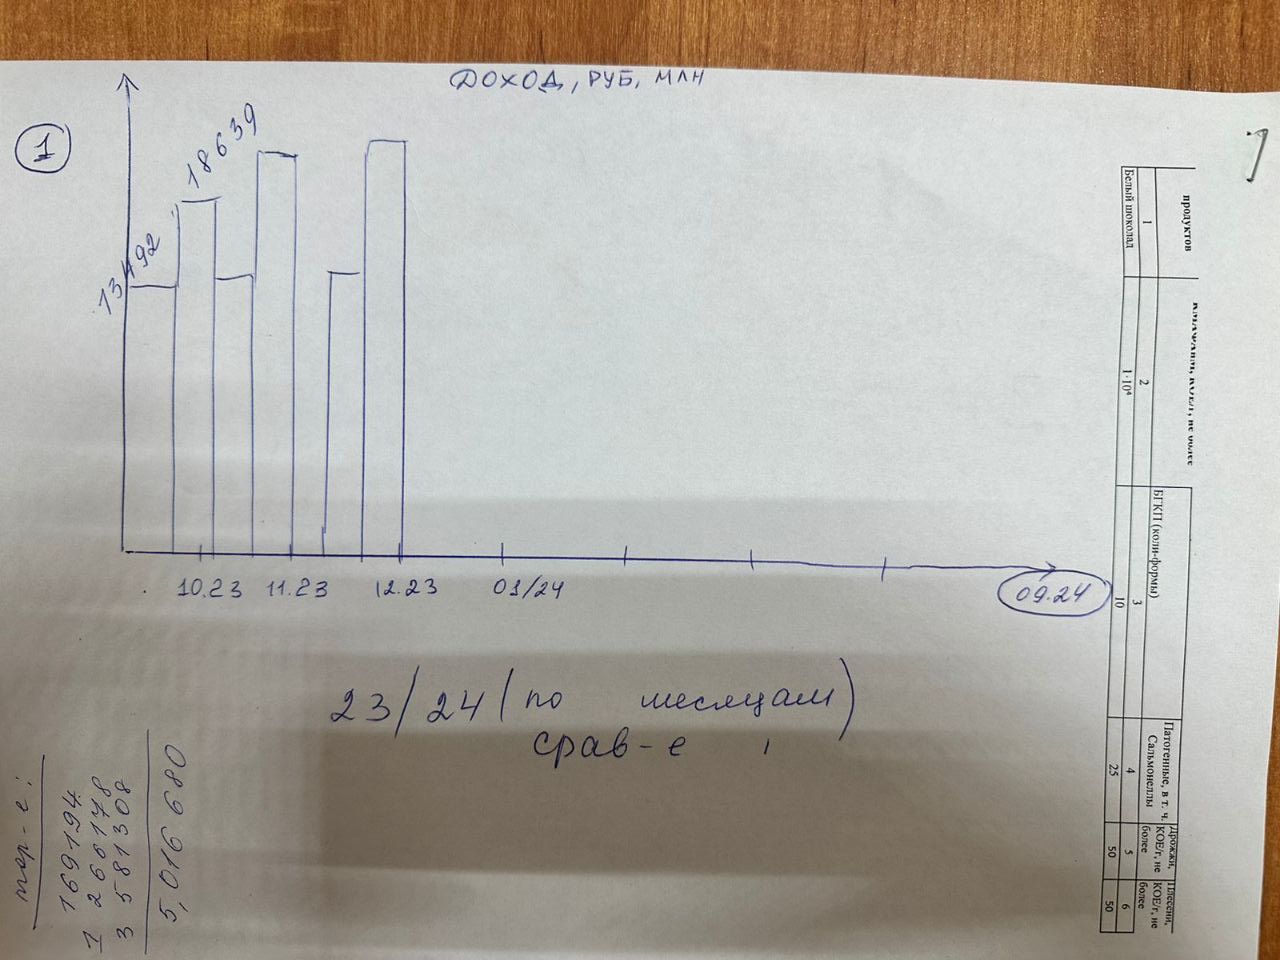 ДОХОД, РУБ, МЛН
1
18639
13492
10.23 11.23 12.23 01/24 09.24
23/24 (по месяцам)
срав-е
169194
1 266178
3 581308
5,016 680
продуктов
КМАФАнМ, КОЕ/г, не более
БГКП (коли-формы)
Патогенные, в т. ч. Сальмонеллы
Дрожжи, КОЕ/г, не более
Плесени, КОЕ/г, не более
1 2 3 4 5 6
Белый шоколад 1·10⁴ 10 25 50 50